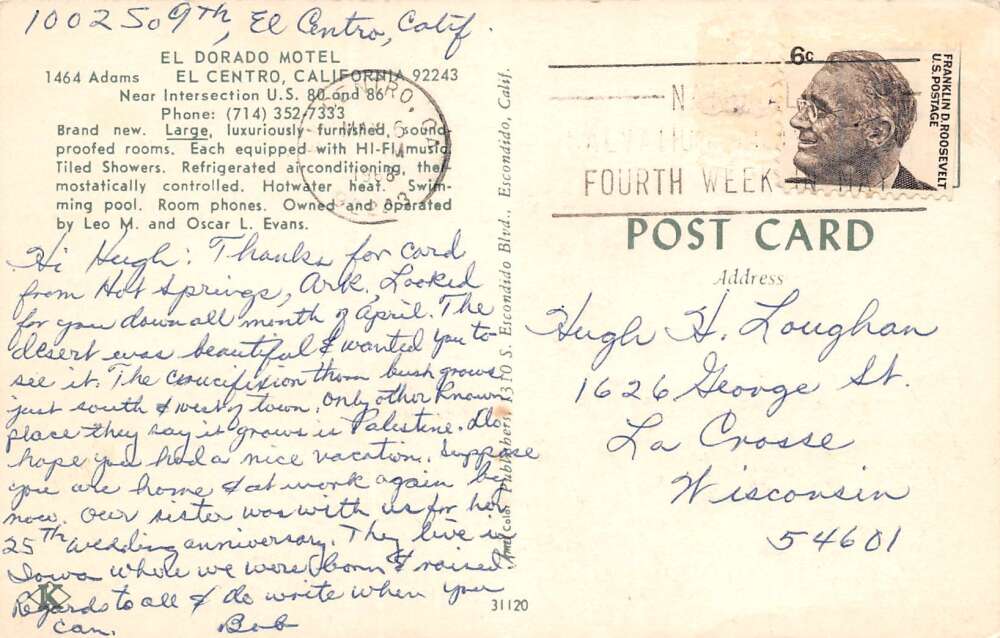 1002 So 9th, El Centro, Calif.
EL DORADO MOTEL
1464 Adams EL CENTRO, CALIFORNIA 92243
Near Intersection U.S. 80 and 86
Phone: (714) 352-7333
Brand new. Large, luxuriously furnished, sound
proofed rooms. Each equipped with HI-FI music
Tiled Showers. Refrigerated airconditioning, ther-
mostatically controlled. Hotwater heat. Swim-
ming pool. Room phones. Owned and operated
by Leo M. and Oscar L. Evans.
Hi Hugh: Thanks for card
from Hot Springs, Ark. Looked
for you down all month of April. The
desert was beautiful & wanted you to
see it. The crucifixion thorn bush grows
just south & west of town. Only other known
place they say it grows is Palestine. Do
hope you had a nice vacation. Suppose
you are home & at work again by
now. Our sister was with us for her
25th wedding anniversary. They live in
Iowa where we were born & raised.
Regards to all & do write when you
can. Bob
K
Color Publishers, 1310 S. Escondido Blvd., Escondido, Calif.
31120
6c
FRANKLIN D. ROOSEVELT
U.S. POSTAGE
FOURTH WEEK IN MAY
POST CARD
Address
Hugh H. Loughan
1626 George St.
La Crosse
Wisconsin
54601